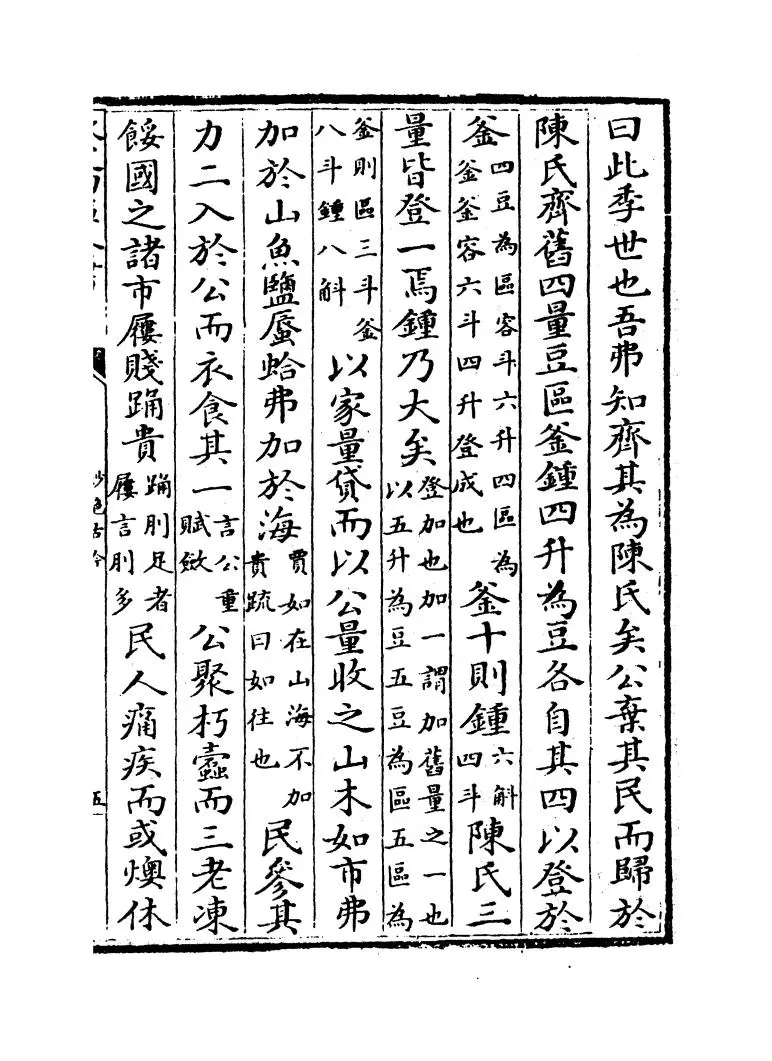 曰此季世也吾弗知齊其為陳氏矣公棄其民而歸於
陳氏齊舊四量豆區釜鍾四升為豆各自其四以登於
釜四豆為區容斗六升四區為釜釜容六斗四升登成也釜十則鍾六斛四斗陳氏三
量皆登一焉鍾乃大矣登加也加一謂加舊量之一也以五升為豆五豆為區五區為
釜則區三斗釜八斗鍾八斛以家量貸而以公量收之山木如市弗
加於山魚鹽蜃蛤弗加於海賈如在山海不加貴疏曰如往也民參其
力二入於公而衣食其一言公重賦斂公聚朽蠹而三老凍
餒國之諸市屨賤踊貴踊刖足者屨言刖多民人痛疾而或燠休
五